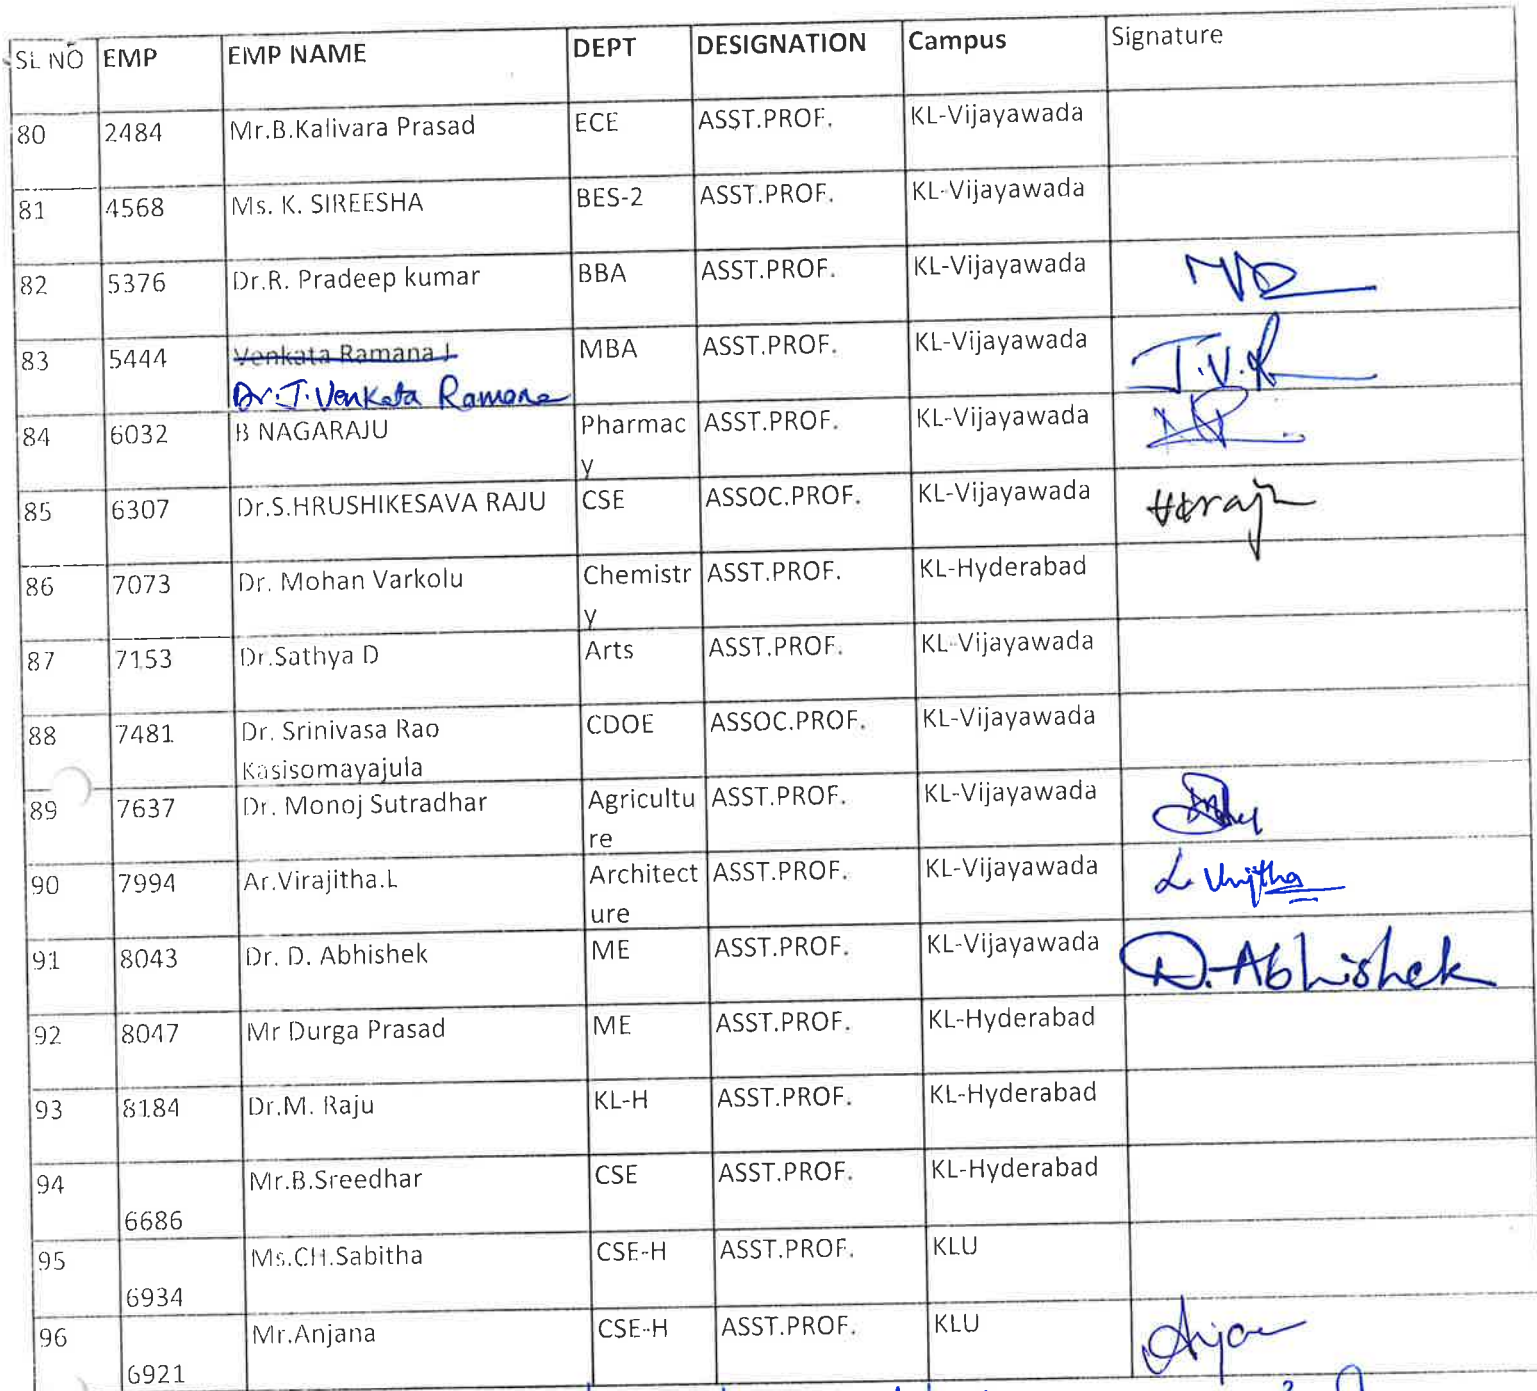 SL NO EMP EMP NAME DEPT DESIGNATION Campus Signature
80 2484 Mr.B.Kalivara Prasad ECE ASST.PROF. KL-Vijayawada
81 4568 Ms. K. SIREESHA BES-2 ASST.PROF. KL-Vijayawada
82 5376 Dr.R. Pradeep kumar BBA ASST.PROF. KL-Vijayawada
83 5444 Venkata Ramana J MBA ASST.PROF. KL-Vijayawada J.V.R
Dr.J.Venkata Ramana
84 6032 B NAGARAJU Pharmac ASST.PROF. KL-Vijayawada
y
85 6307 Dr.S.HRUSHIKESAVA RAJU CSE ASSOC.PROF. KL-Vijayawada
86 7073 Dr. Mohan Varkolu Chemistr ASST.PROF. KL-Hyderabad
y
87 7153 Dr.Sathya D Arts ASST.PROF. KL-Vijayawada
88 7481 Dr. Srinivasa Rao CDOE ASSOC.PROF. KL-Vijayawada
Kasisomayajula
89 7637 Dr. Monoj Sutradhar Agricultu ASST.PROF. KL-Vijayawada
re
90 7994 Ar.Virajitha.L Architect ASST.PROF. KL-Vijayawada
ure
91 8043 Dr. D. Abhishek ME ASST.PROF. KL-Vijayawada D.Abhishek
92 8047 Mr Durga Prasad ME ASST.PROF. KL-Hyderabad
93 8184 Dr.M. Raju KL-H ASST.PROF. KL-Hyderabad
94 Mr.B.Sreedhar CSE ASST.PROF. KL-Hyderabad
6686
95 Ms.CH.Sabitha CSE-H ASST.PROF. KLU
6934
96 Mr.Anjana CSE-H ASST.PROF. KLU
6921